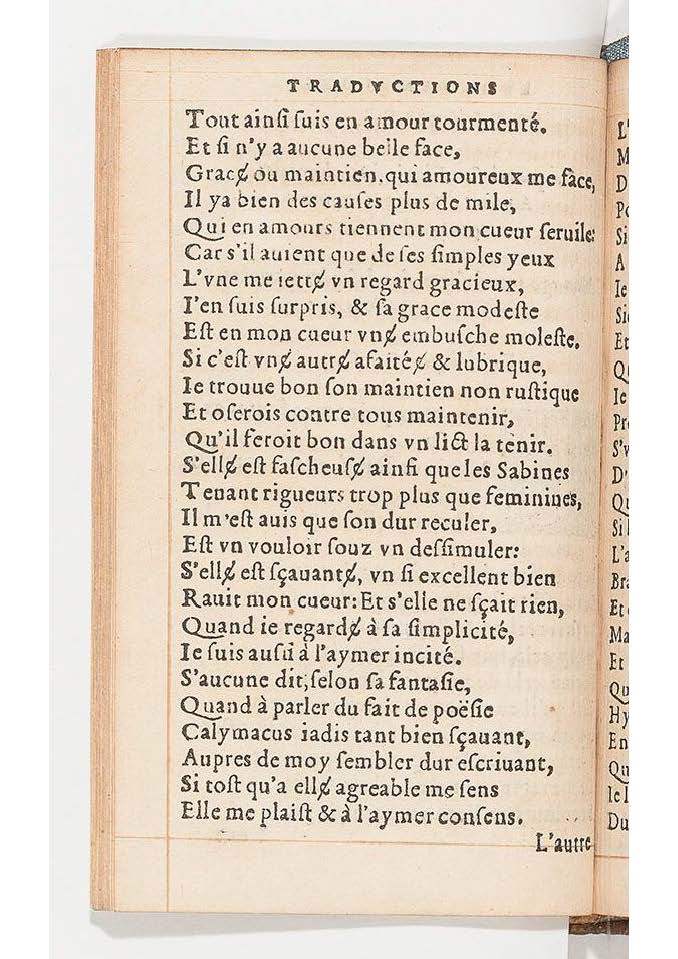 TRADVCTIONS
Tout ainſi ſuis en amour tourmenté.
Et ſi n'y a aucune belle face,
Gracɇ ou maintien, qui amoureux me face,
Il ya bien des cauſes plus de mile,
Qui en amours tiennent mon cueur ſeruile:
Car s'il auient que de ſes ſimples yeux
L'vne me iettɇ vn regard gracieux,
I'en ſuis ſurpris, & ſa grace modeſte
Eſt en mon cueur vnɇ embuſche moleſte.
Si c'eſt vnɇ autrɇ afaitéɇ & lubrique,
Ie trouue bon ſon maintien non ruſtique
Et oſerois contre tous maintenir,
Qu'il feroit bon dans vn lict la tenir.
S'ellɇ eſt faſcheuſɇ ainſi que les Sabines
Tenant rigueurs trop plus que feminines,
Il m'eſt auis que ſon dur reculer,
Eſt vn vouloir ſouz vn deſſimuler:
S'ellɇ eſt ſçauantɇ, vn ſi excellent bien
Rauit mon cueur: Et s'elle ne ſçait rien,
Quand ie regardɇ à ſa ſimplicité,
Ie ſuis auſſi à l'aymer incité.
S'aucune dit, ſelon ſa fantaſie,
Quand à parler du fait de poëſie
Calymacus iadis tant bien ſçauant,
Aupres de moy ſembler dur eſcriuant,
Si toſt qu'a ellɇ agreable me ſens
Elle me plaiſt & à l'aymer conſens.
L'autre
L'
M
D
Po
Si
A
Ie
Sie
Et
Qu
Ie
Pr
S'v
D'
Qu
Si l
L'a
Bra
Et
Ma
Et
Qu
Hy
En
Qu
Ie l
Du